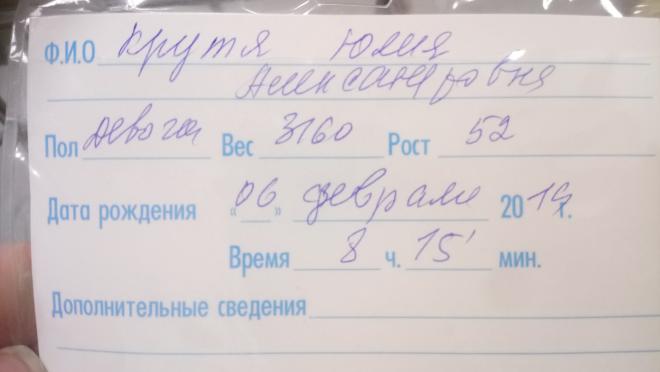 Ф.И.О Крутя Юлия
Александровна
Пол девочка Вес 3160 Рост 52
Дата рождения «06» февраля 2019г.
Время 8 ч. 15' мин.
Дополнительные сведения